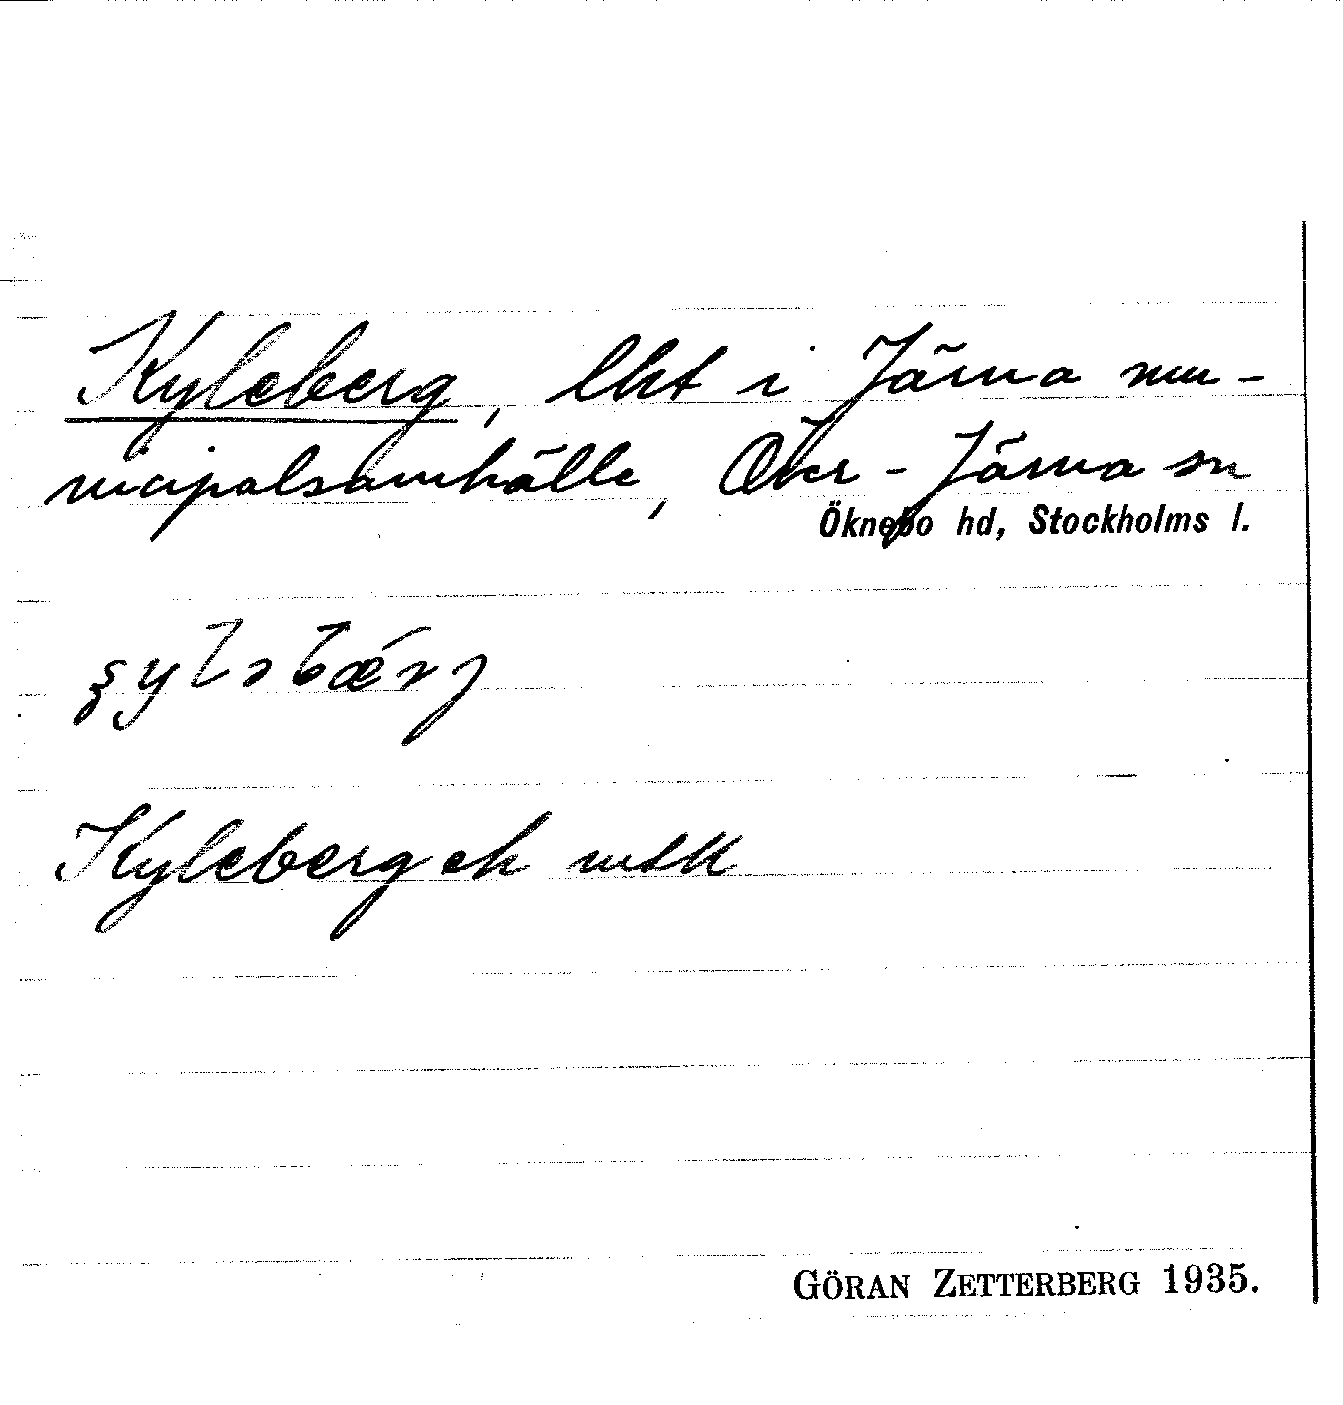 Kyleberg, lht i Järna mu-
nicipalsamhälle, Över-Järna sn
Öknebo hd, Stockholms l.
Kyleberg ek mtk
GÖRAN ZETTERBERG 1935.